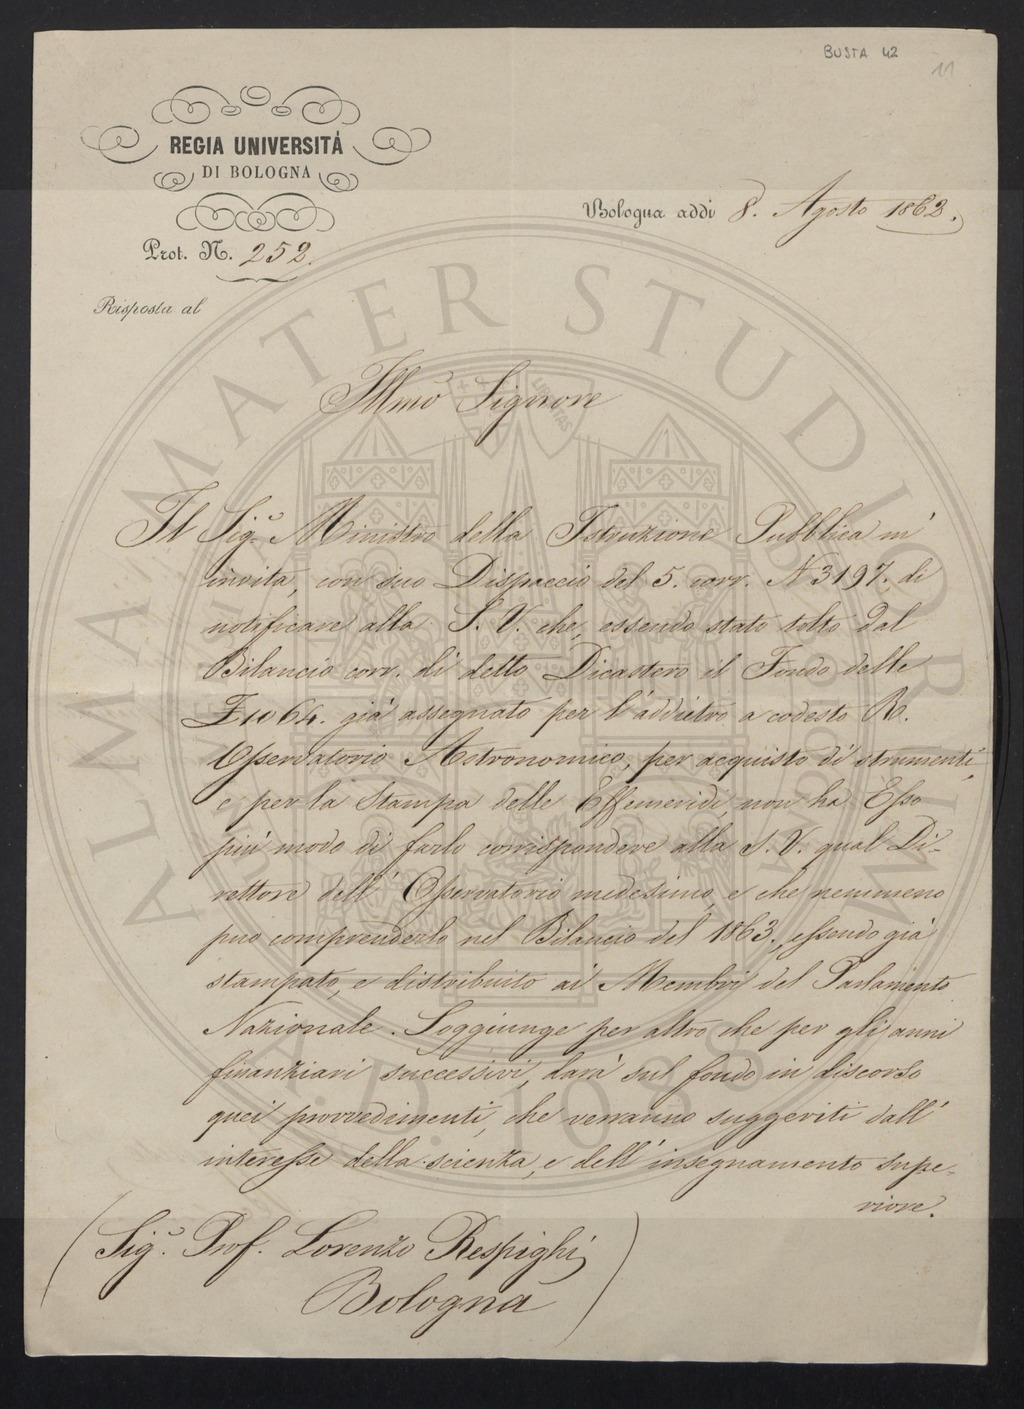 BUSTA 42
11
REGIA UNIVERSITÁ
DI BOLOGNA
Prot. N. 252.
Bologna addì 8. Agosto 1862.
Risposta al
Illmo Signore
Il Sig.r Ministro della Istruzione Pubblica m'
invita, con suo Dispaccio del 5. corr. N 3197. di
notificare alla S. V. che, essendo stato tolto dal
Bilancio corr. di detto Dicastero il Fondo delle
£1064. già assegnato per l'addietro a codesto R.
Osservatorio Astronomico, per acquisto di strumenti,
e per la Stampa delle Effemeridi, non ha Esso
più modo di farlo corrispondere alla S. V. qual Di-
rettore dell' Osservatorio medesimo, e che nemmeno
può comprenderlo nel Bilancio del 1863, essendo già
stampato, e distribuito ai Membri del Parlamento
Nazionale. Soggiunge per altro che per gli anni
finanziari successivi, darà sul fondo in discorso
quei provvedimenti, che verranno suggeriti dall'
interesse della scienza, e dell' insegnamento supe-
riore.
(Sig.r Prof. Lorenzo Respighi
Bologna)
ALMA MATER STUDIORUM
A.D. 1088
LIBERTAS